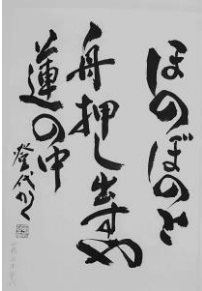 ほのぼのと
舟押し出すや
蓮の中
登代かく